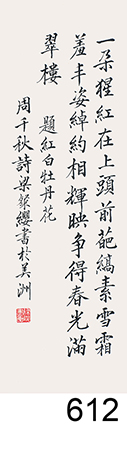 一朵猩紅在上頭前葩縞素雪霜
羞丰姿綽約相輝映爭得春光滿
翠樓
題紅白牡丹花
周千秋詩梁粲纓書於美洲
612